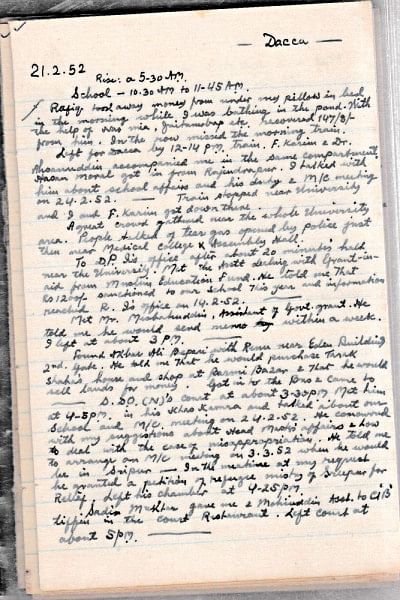 — Dacca —
21.2.52
Rise: a 5-30 A.M.
School — 10.30 AM to 11-45 A.M.
Rafiq took away money from under my pillow in bed
in the morning while I was bathing in the pond. With
the help of Was mia, etc. recovered 147/8/-
from him. In the row missed the morning train.
Left for Dacca by 12-14 P.M. train. F. Karim & Dr.
Ahsanuddin accompanied me in the same compartment.
Hasan Moral got in from Rajendrapur. I talked with
him about school affairs and his duty & M/C meeting
on 24.2.52. — Train stopped near University
and I and F. Karim got down there.
A great crowd gathered near the whole University
area. People talked of tear gas opened by police just
then near Medical College & Assembly Hall.
To D.P.I's office after about 20 minutes halt
near the University. Met the Asstt dealing with Grant-in-
aid from Muslim Education Fund. He told me that
Rs 1200/- sanctioned to our school this year and information
reached R. I's office on 14.2.52.
Met Mr. Misbahuddin, Assistant of Govt. grant. He
told me he would send memo within a week.
I left at about 3 P.M.
Found Akbar Ali Bepari with Renu near Eden Building
2nd. Gate. He told me that he would purchase Tarak
Shaha's house and shop at Barmi Bazar & that he would
sell lands for money. Got in to the Bus & came to
S.D.O. (N)'s court at about 3-30 PM. Met him
at 4-5 PM. in his Khas Kamra and talked about our
School and M/C. meeting on 24.2.52. He concurred
with my suggestions about Head Master's affairs & how
to deal with the case of misappropriation. He told me
to arrange an M/C meeting on 3.3.52 when he would
be in Sripur — In the meantime at my request
he granted a petition of refugee of Sripur for
Relief. Left his chamber at 4-25 PM.
Sadir Mukhtar gave me & Mohiuddin Asst. to C/B
tiffin in the court Restaurant. Left court at
about 5 PM.